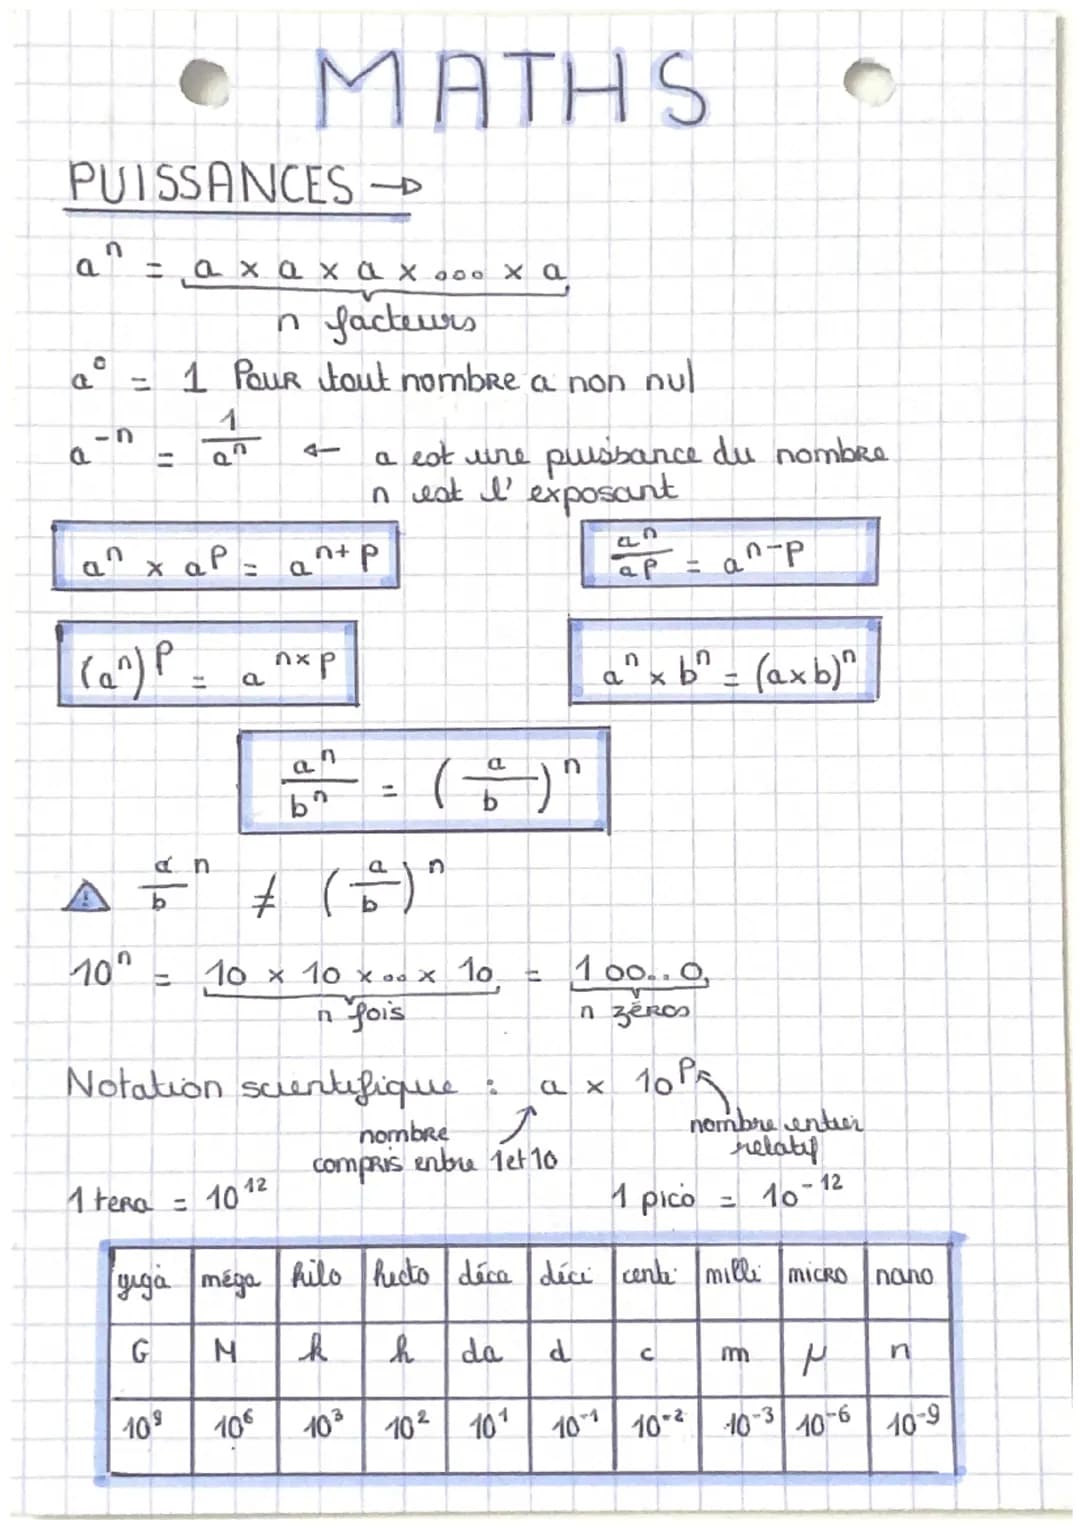 MATHS
PUISSANCES →
aⁿ = a x a x a x ... x a
n facteurs
a⁰ = 1 Pour tout nombre a non nul
a⁻ⁿ = 1/aⁿ ← a est une puissance du nombre
n est l'exposant
aⁿ x aᵖ = aⁿ⁺ᵖ
aⁿ/aᵖ = aⁿ⁻ᵖ
(aⁿ)ᵖ = aⁿˣᵖ
aⁿ x bⁿ = (axb)ⁿ
aⁿ/bⁿ = (a/b)ⁿ
⚠ a/b ⁿ ≠ (a/b)ⁿ
10ⁿ = 10 x 10 x ... x 10 = 100..0
n fois n zéros
Notation scientifique : a x 10ᵖ
nombre compris entre 1 et 10
nombre entier relatif
1 tera = 10¹² 1 pico = 10⁻¹²
giga méga kilo hecto déca déci centi milli micro nano
G M k h da d c m µ n
10⁹ 10⁶ 10³ 10² 10¹ 10⁻¹ 10⁻² 10⁻³ 10⁻⁶ 10⁻⁹